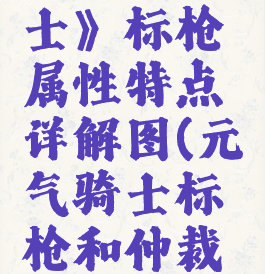 士》标枪
属性特点
详解图(元
气骑士标
枪和仲裁